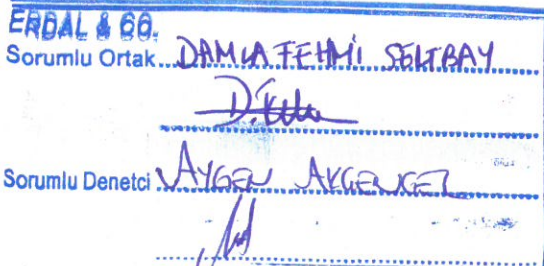 ERDAL & CO.
Sorumlu Ortak DAMLA FEHMİ SELTBAY
Sorumlu Denetci AYGEN